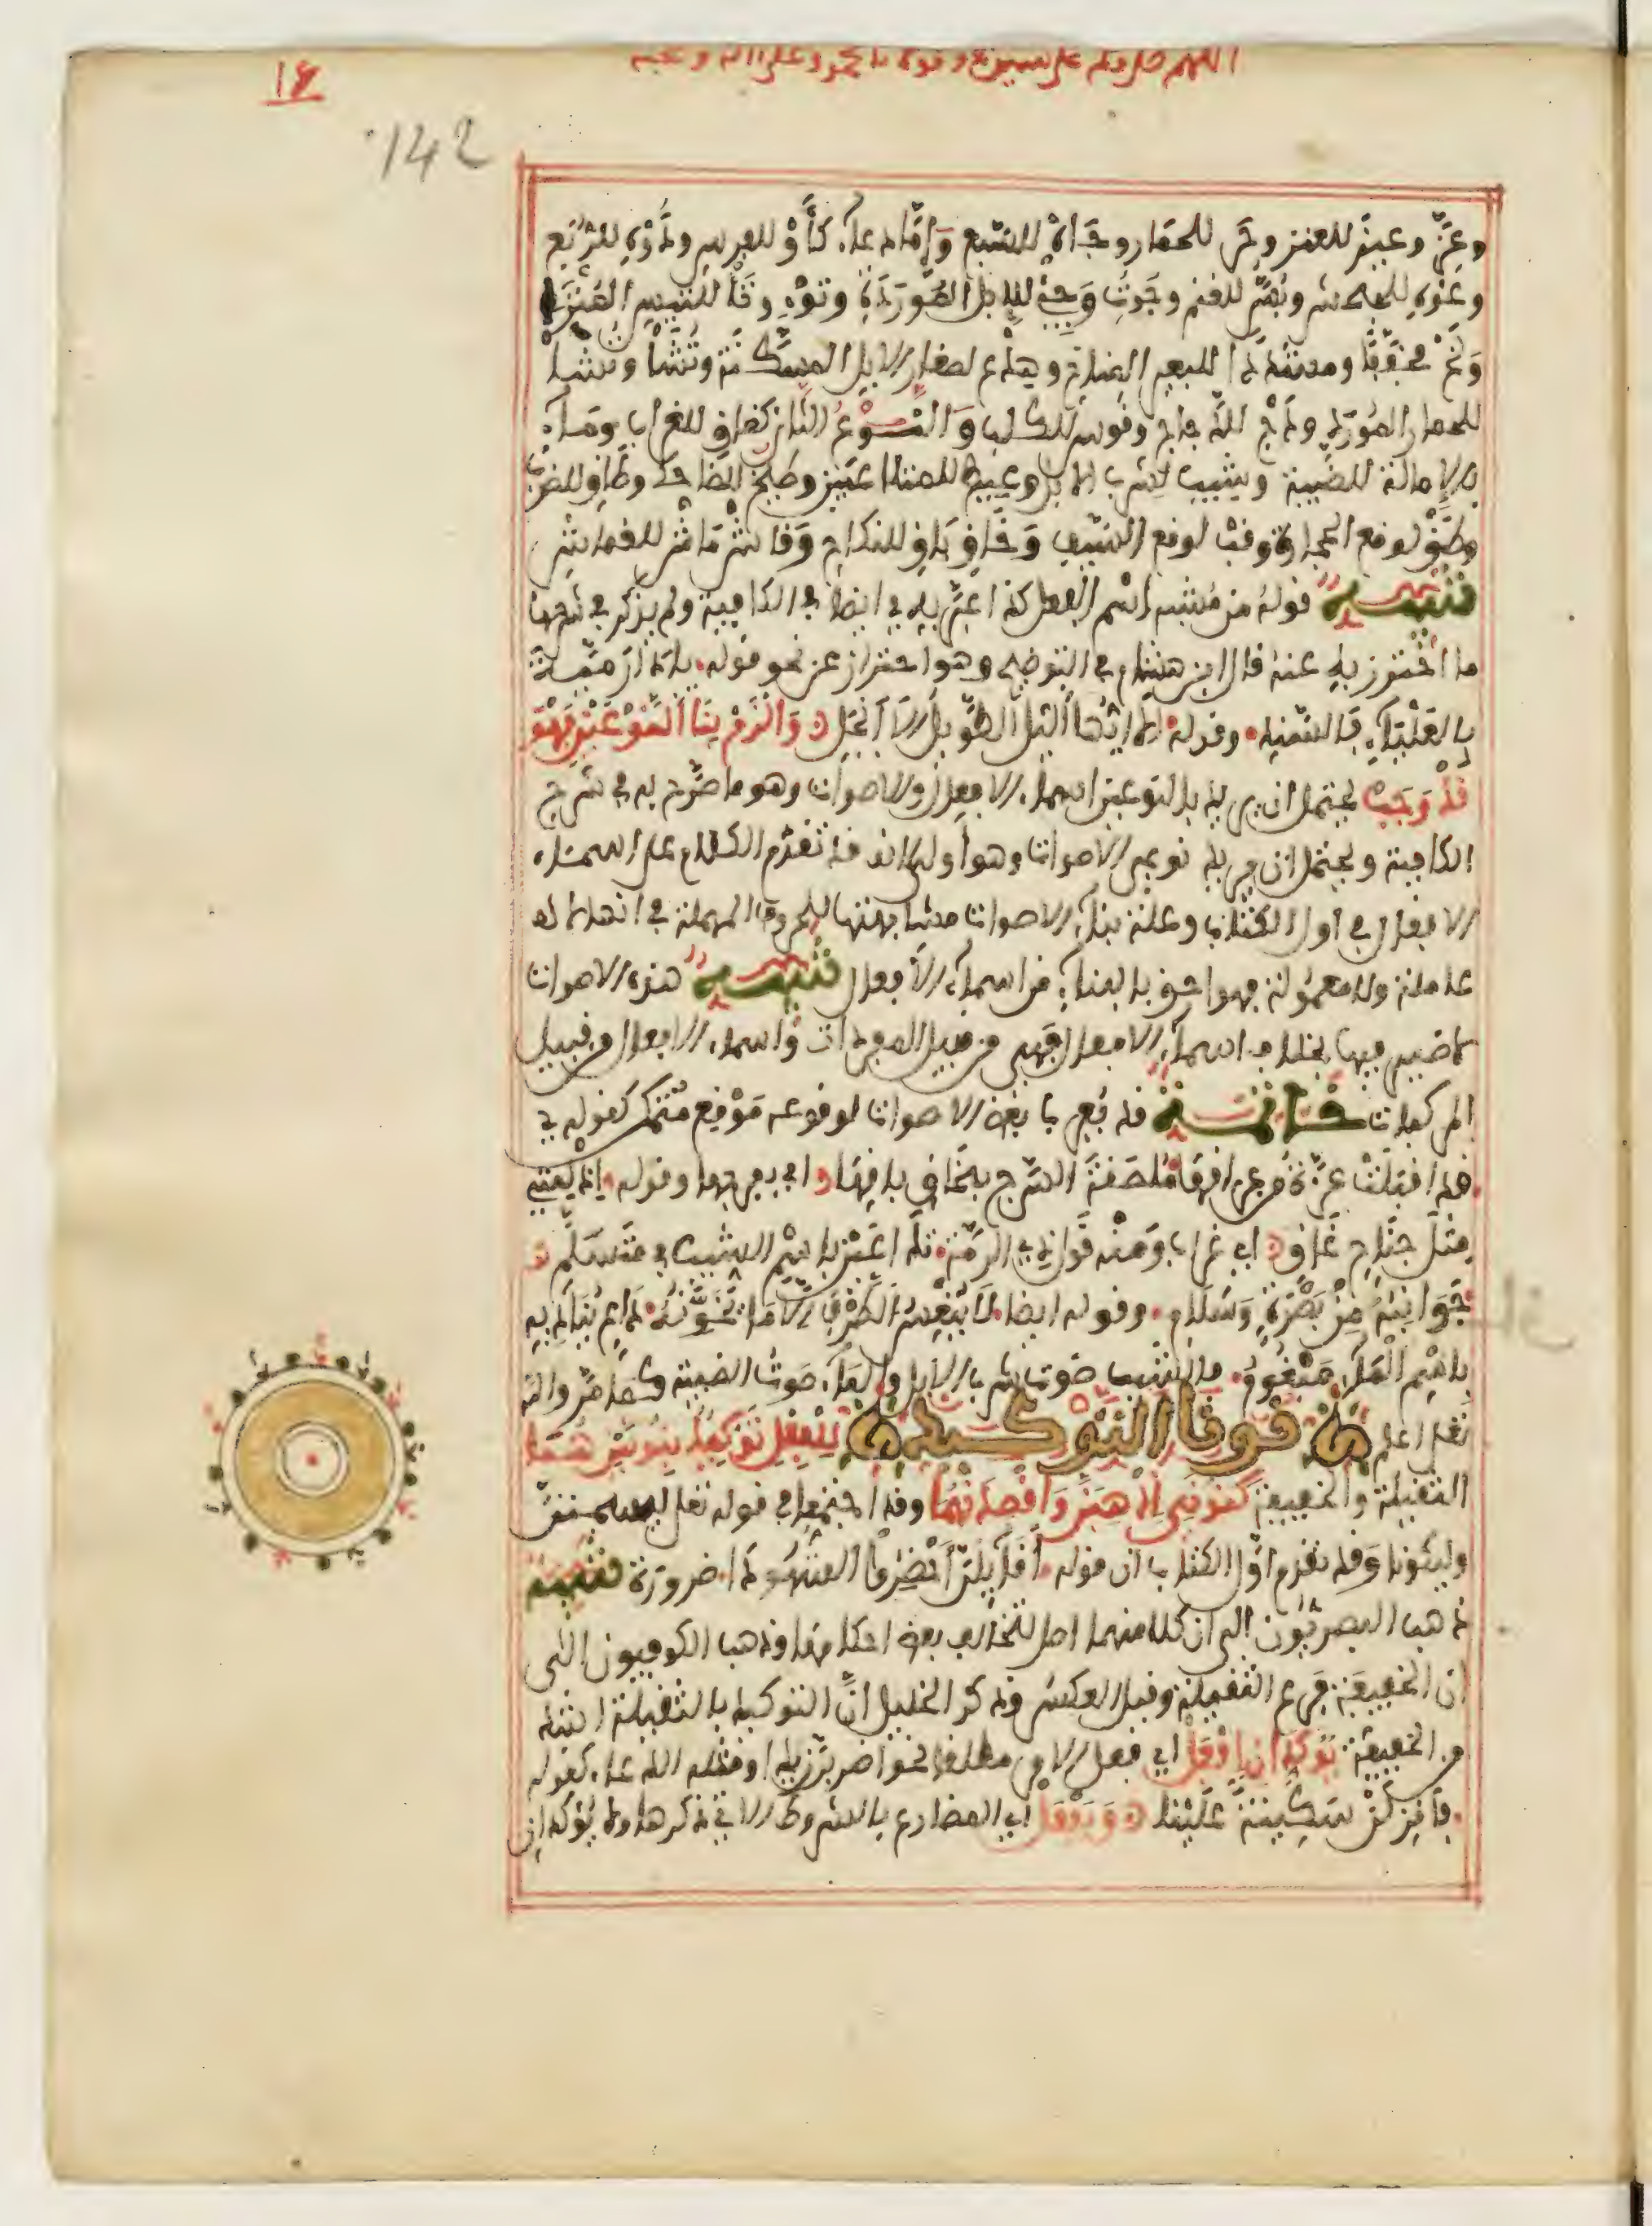 اللهم صل وسلم على سيدنا ومولانا محمد وعلى اله وصحبه
142
وعَزّ وعيز للعنز وحَر للحمار وجَاهْ للسّبع وَإمَّا دعاء كأَوْ للفرس ودَوْهِ للرّبَع
وعَوْهِ للجحش وبُسّ للغنم وجَوْتِ وَجِئْ للإبل المَوْرَدَةِ وتؤْ وتَأْ للتيس المُنْزَا
وَنَخْ مخفّفًا ومشدّدًا للبعير المناخ وهِدَعْ لصغار الابل المسكّنة وتُشَأْ وتشأْ
للحمار المُوْرَد ودَجْ للدّجاج وقوس للكلب وَالنّوْعُ الثان كغاق للغراب ومَاءِ
بالإمالة للضبية وشيب لشرب الابل وعيط للمتلاعبين وطيخ للضاحك وطاق للضرب
وطَقْ لوقع الحجارة وقَبْ لوقع السّيف وَخَاقِ بَاقِ للنكاح وَقَاشْ مَاشْ للقماش
تنبيه قوله من مشبه اسْم الفعل كذا عبّر به ايضا في الكافية ولم يذكر في شرحها
ما احْترز به عنه قال ابن هشام في التوضيح وهو احتراز عن نحو قوله يا دَارَ مَيّةَ
بالعَلْيَاءِ فالسّنَدِ وقوله الا ايُّها اللّيل الطّويلُ ألاَ انْجَلِ وَالْزَمْ بِنَا النَّوْعَيْنِ فَهْوَ
قَدْ وَجَبْ يحتمل ان يريد بالنوعين اسماء الافعال والاصوات وهو ما صرّح به في شرح
الكافية ويحتمل ان يريد نوعي الاصوات وهو أولى لانه قد تقدّم الكلام على اسماء
الافعال في اول الكتاب وعلة بناء الاصوات مشابهتها للحروف المهملة في انها لا
عاملة ولا معمُولة فهو احق بالبناء من اسماء الأفعال تنبيه هذه الاصوات
لا ضمير فيها بخلاف اسماء الافعال فهي من قبيل المفردات واسماء الافعال من قبيل
المركبات خاتمة قد يُعرب بعْض الاصوات لوقوعه مَوْقِع مُتمكّن كقوله
قد اقبلَتْ عزّة من عراقهَا مُلصقةَ السّرْج بخَاقِ باقِهَا اي بفرجها وقوله اذ لمتي
مِثل جَنَاحِ غَاقْ اي غراب وَمنه قول ذي الرّمّة تَدَاعَيْن باسْم الشِّيب في متثلِّم
جَوَانِبُهُ مِنْ بَصْرَةٍ وَسِلَامِ وقوله ايضا لا يَنْعِشُ الطَّرْفَ الّا مَا تَخَوَّنَهُ دَاعٍ يُنَادِيهِ
باسْم الْمَاءِ مَبْغُومُ فالشيب صَوت شرب الابل والمَاء صَوتُ الضبية كما مرّ والله
تعلى اعلم نونا التوكيد لِلْفِعْلِ تَوْكِيدٌ بِنُونَيْنِ هُمَا
الثقيلة والخفيفة كَنُونَيِ اذْهَبَنَّ وَاقْصِدَنْهُمَا وقد اجتمعا في قوله تعلى ليسجننّ
وليكونا وَقد تقدم اوّل الكتاب ان قوله أَقَائِلُنَّ أَحْضِرُوا الشُّهُودَا ضرورة تنبيه
ذهب البصريُّون الى ان كلا منهما اصل لتخالف بعض احكامهما وذهب الكوفيون الى
ان الخفيفة فرع الثقيلة وقيل العكس وذكر الخليل انَّ التوكيد بالثقيلة اشد
من الخفيفة يُؤَكِّدَانِ افْعَلْ اي فعل الامر مطلقا نحو اضربَنْ زيدا ومثله الدعاء كقوله
فَأَنْزِلَنْ سَكِينَةً عَلَيْنَا وَيَفْعَلْ اي المضارع بالشروط الاتي ذكرها ولا يُؤكدان